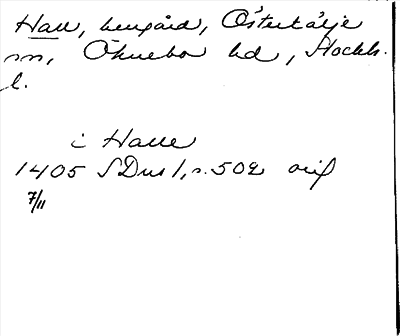 Hall, herrgård, Östertälje
sn, Öknebo hd, Stockh.
l.
i Halle
1405 SDns 1, s. 502 orig
7/11